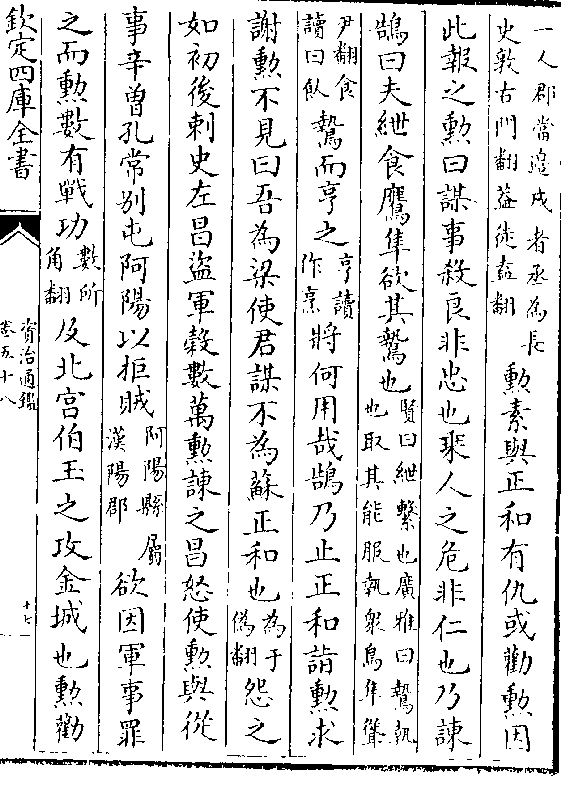 一人郡當邊戍者丞為長
史敦古門翻蓋徒盍翻
勲素與正和有仇或勸勲因
此報之勲曰謀事殺良非忠也乘人之危非仁也乃諫
鵠曰夫紲食鷹隼欲其鷙也
賢曰紲繫也廣雅曰鷙執
也取其能服執衆鳥隼聳
尹翻食
讀曰飤
鷙而亨之
亨讀
作烹
將何用哉鵠乃止正和詣勲求
謝勲不見曰吾為梁使君謀不為蘇正和也
為于
偽翻
怨之
如初後刺史左昌盜軍穀數萬勲諫之昌怒使勲與從
事辛曾孔常别屯阿陽以拒賊
阿陽縣屬
漢陽郡
欲因軍事罪
之而勲數有戰功
數所
角翻
及北宫伯玉之攻金城也勲勸
欽定四庫全書
資治通鑑
卷五十八
十七